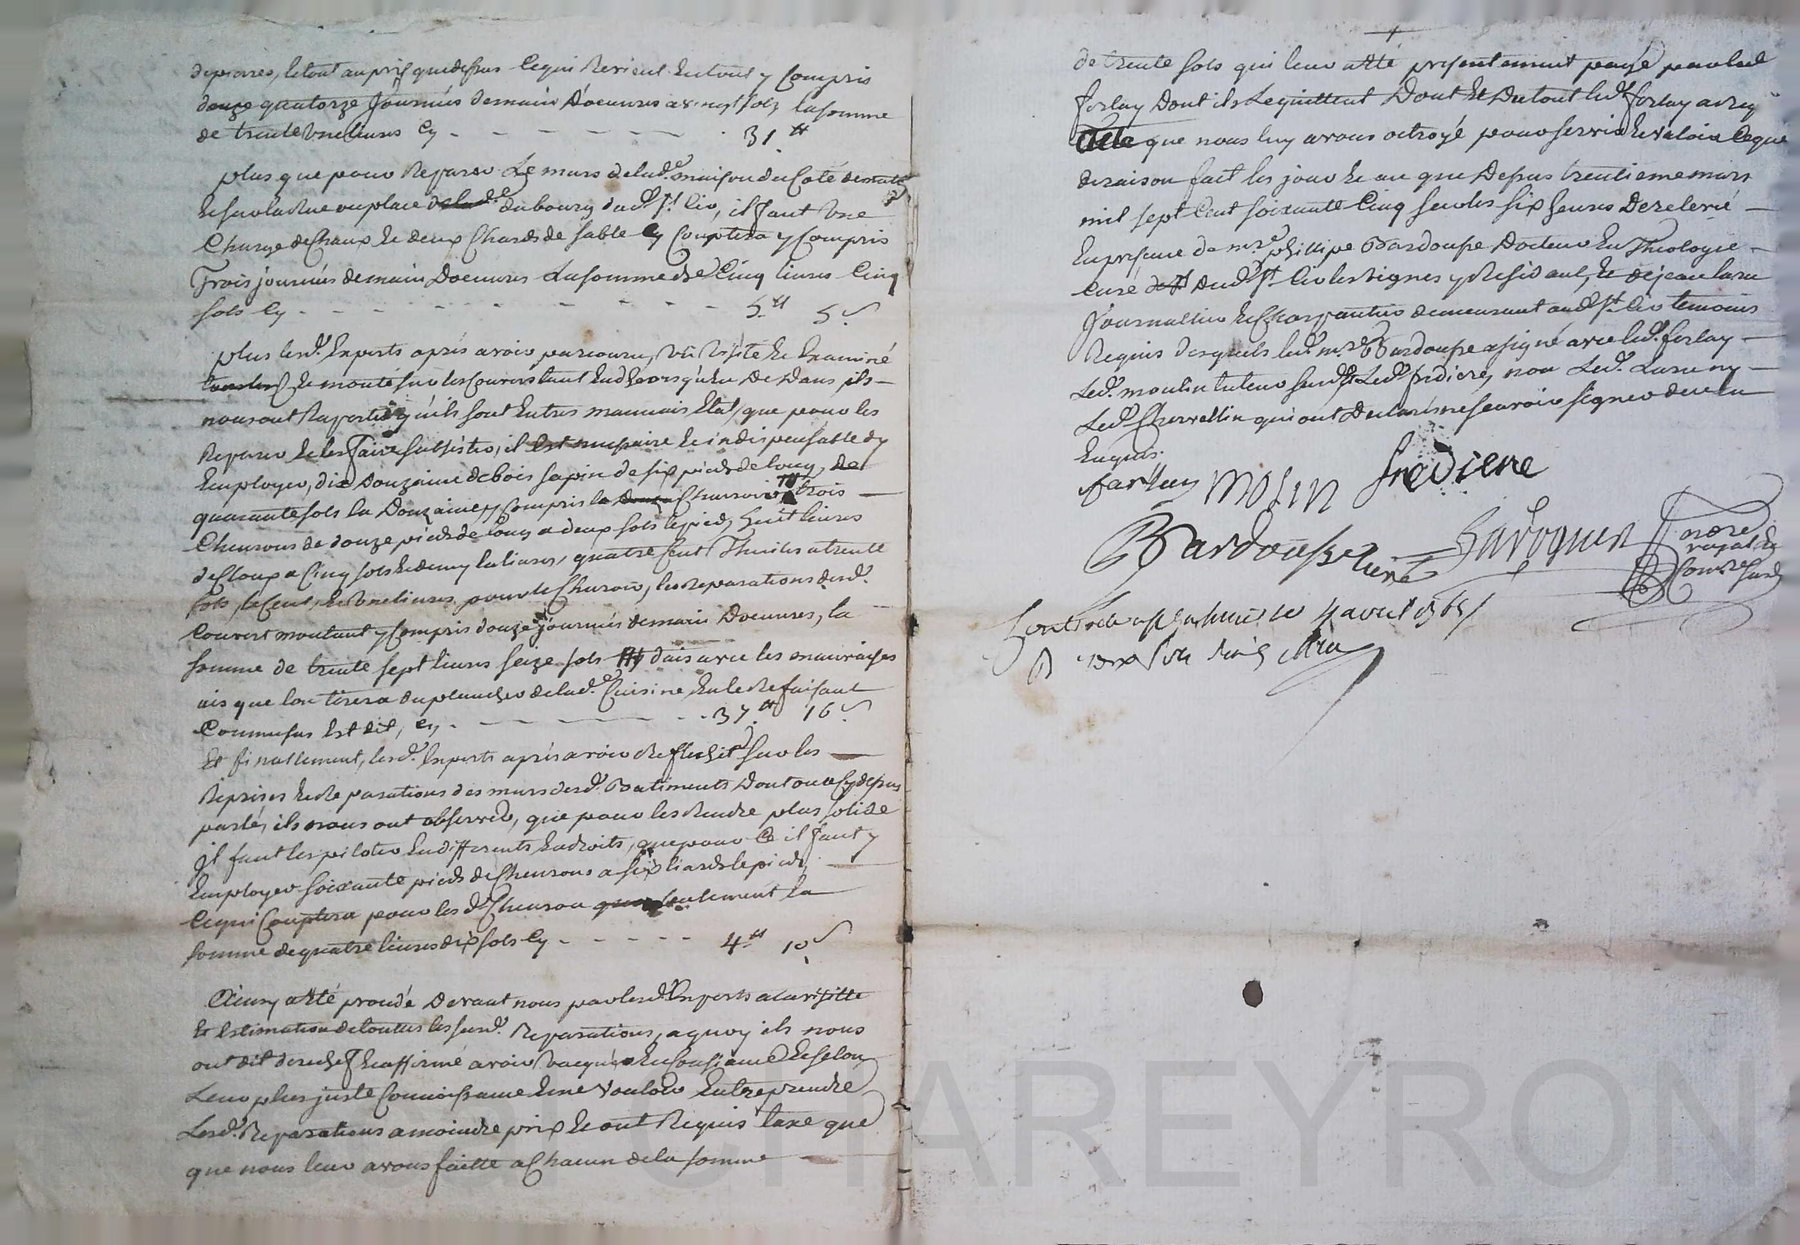 depierres, letout auprix quedessus Cequi Revient Entout y Compris
douze quatorze Journées demain D'oeuvres a vingt sols, lasomme
de trente une livres Cy - - - - - - - 31.tt
plus que pour Reparer Le murs delad.e maison du Coté
Et sur la Rue ou place dubourg dud. St. Cir, il faut Une
Charge deChaux Et deux Chards de sable Cy Couptera y Compris
Trois journées demain Doeuvres Lasomme de Cinq livres Cinq
sols Cy - - - - - - - - - 5.tt 5.s
plus lesd. Experts après avoir parcouru, Vû Visité Et Examiné
Et monté sur les Couverts tant Endehors qu'En Dedans, ils
nous ont Rapporté qu'ils sont Entres mauvais Etat, que pour les
Reparer Et les faire subsister, il est necessaire Et indispensable dy
Employer, dix Douzaine debois sapin de six pieds de long, De
quarante sols la Douzaine y Compris le Charroir trois
Chevrons de douze pieds de long a deux sols lepied, huit livres
deCloux a Cinq sols Et demy la livre, quatre Cent Thuiles a trente
sols, le Cent, Et Une livres pour le Charoir, les reparations desd.
Couvert montant y Compris douze journées demain Doeuvres, la
somme de trente sept livres seize sols dais avec les mauvaises
ais que lon tirera duplancher delad.e Cuisine En le Refaisant
Commesus Est dit, Cy - - - - - - 37.tt 16.s
Et finallement, lesd. Experts après avoir Reflechit sur les
Reprises Et Reparations des murs desd. Batiments Dont on a Cydessus
parlé, ils nous ont observé, que pour les Rendre plus solide
il faut les piloter En differents Endroits, que pour Ce il faut y
Employer soixante pieds de Chevrons a six liards le pied,
Cequi Couptera pour lesd. Chevron seulement la
somme de quatre livres dix sols Cy - - - - - 4.tt 10.s
Ainsy a Eté procédé Devant nous par lesd. Experts a la visitte
Et Estimation de toutes les susd. Reparations, a quoy ils nous
ont dit derechef Et affirmé avoir Vacqué En Consciance Et selon
Leur plus juste Connoissance Et ne Vouloir Entreprendre
Lesd. Reparations a moindre prix Et ont Requis taxe que
que nous leur avons faitte a Chacun de la somme
de trente sols qui leur a Eté presentement payé par led
forlay Dont ils Le quittent Dont Et Du tout led. forlay a req
Acte que nous luy avons octroyé pour servir Et valoir Ceque
de raison fait les jour Et an que Dessus trentieme mars
mil sept Cent soixante Cinq sur les six heures De relevé
En presence de m.re philippe Bardousse Docteur En Theologie
Curé Dud. St. Cir les Vignes y Residant, Et de jean
Journallier Et Charpantier demeurant aud. St. Cir temoins
Requis desquels led. m.re Bardousse a signé avec led. forlay
Led. moulin tuteur susd. Led. fredière, non Led.
Led. Chervellin qui ont Declaré ne sçavoir signer de ce
Enquis.
farlay molin fredière
Bardousse Curé Laroquen nore
royal Et
Com.re
4 avril 1765